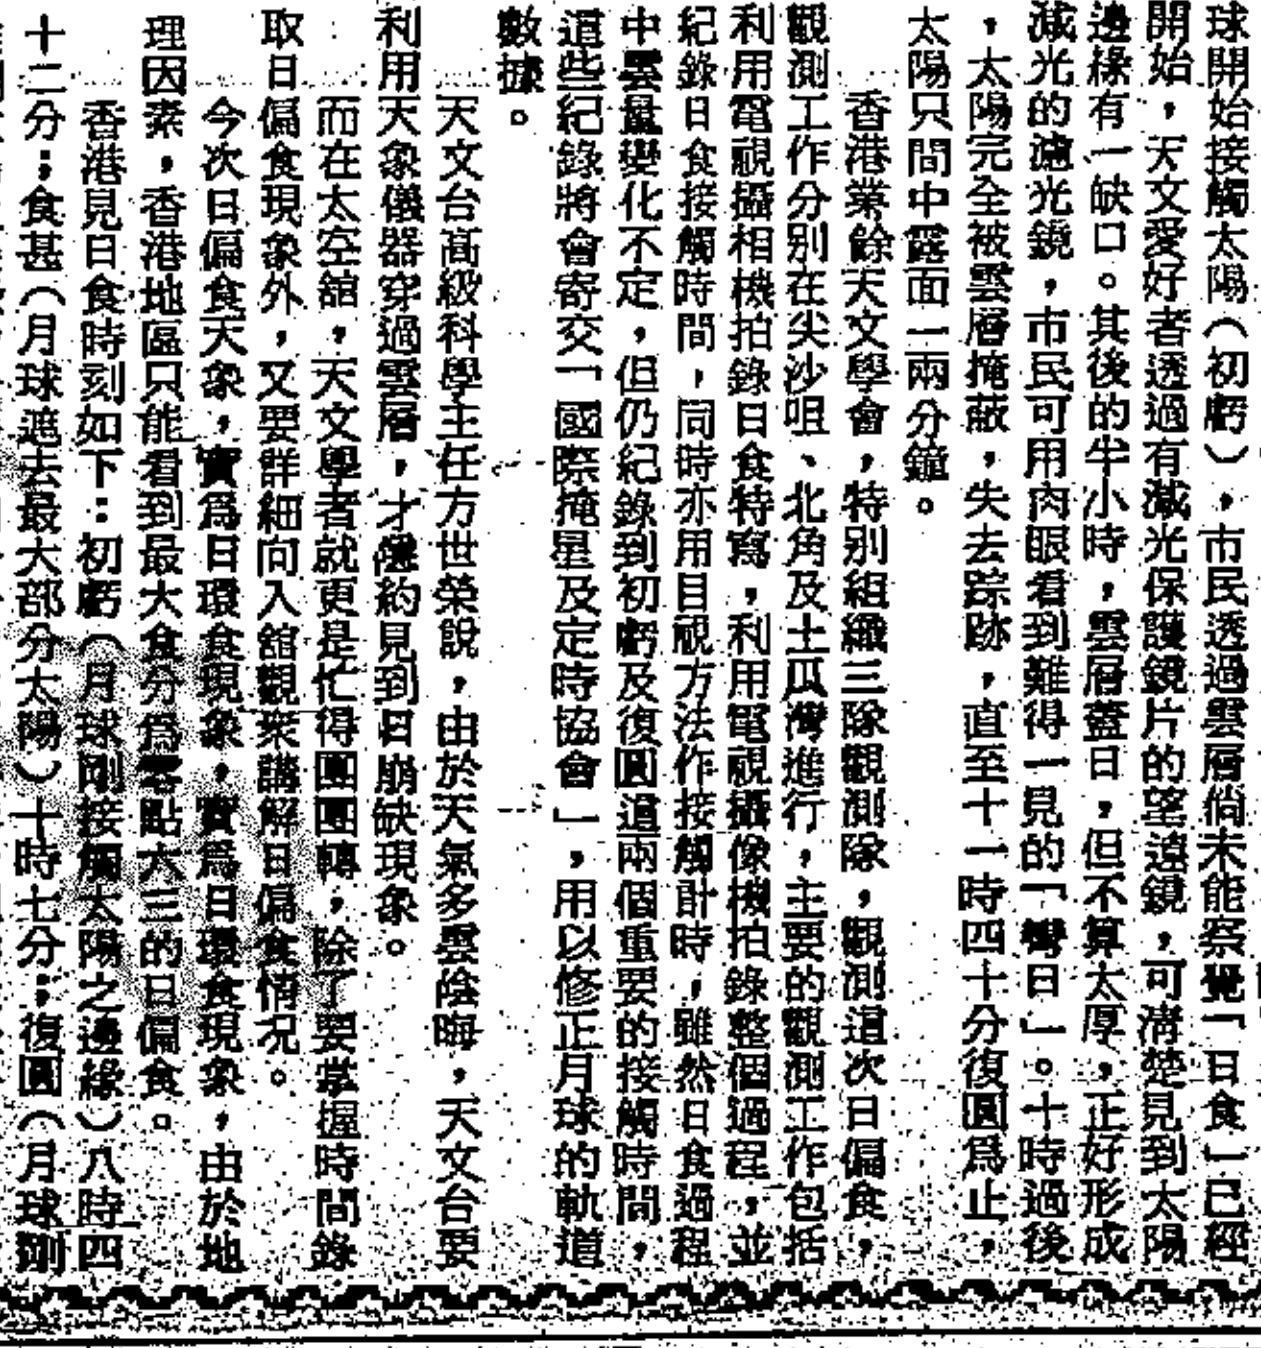 球開始接觸太陽（初虧），市民透過雲層尚未能察覺「日食」已經
開始，天文愛好者透過有減光保護鏡片的望遠鏡，可清楚見到太陽
邊緣有一缺口。其後的半小時，雲層蓋日，但不算太厚，正好形成
減光的濾光鏡，市民可用肉眼看到難得一見的「彎日」。十時過後
，太陽完全被雲層掩蔽，失去踪跡，直至十一時四十分復圓為止，
太陽只間中露面一兩分鐘。
香港業餘天文學會，特別組織三隊觀測隊，觀測這次日偏食，
觀測工作分別在尖沙咀、北角及土瓜灣進行，主要的觀測工作包括
利用電視攝相機拍錄日食特寫，利用電視攝像機拍錄整個過程，並
紀錄日食接觸時間，同時亦用目視方法作接觸計時，雖然日食過程
中雲量變化不定，但仍紀錄到初虧及復圓這兩個重要的接觸時間，
這些紀錄將會寄交「國際掩星及定時協會」，用以修正月球的軌道
數據。
天文台高級科學主任方世榮說，由於天氣多雲陰晦，天文台要
利用天象儀器穿過雲層，才隱約見到日崩缺現象。
而在太空館，天文學者就更是忙得團團轉，除了要掌握時間錄
取日偏食現象外，又要群細向入館觀衆講解日偏食情况。
今次日偏食天象，實爲日環食現象，實爲日環食現象，由於地
理因素，香港地區只能看到最大食分爲零點六三的日偏食。
香港見日食時刻如下：初虧（月球剛接觸太陽之邊緣）八時四
十二分；食甚（月球遮去最大部分太陽）十時七分；復圓（月球剛